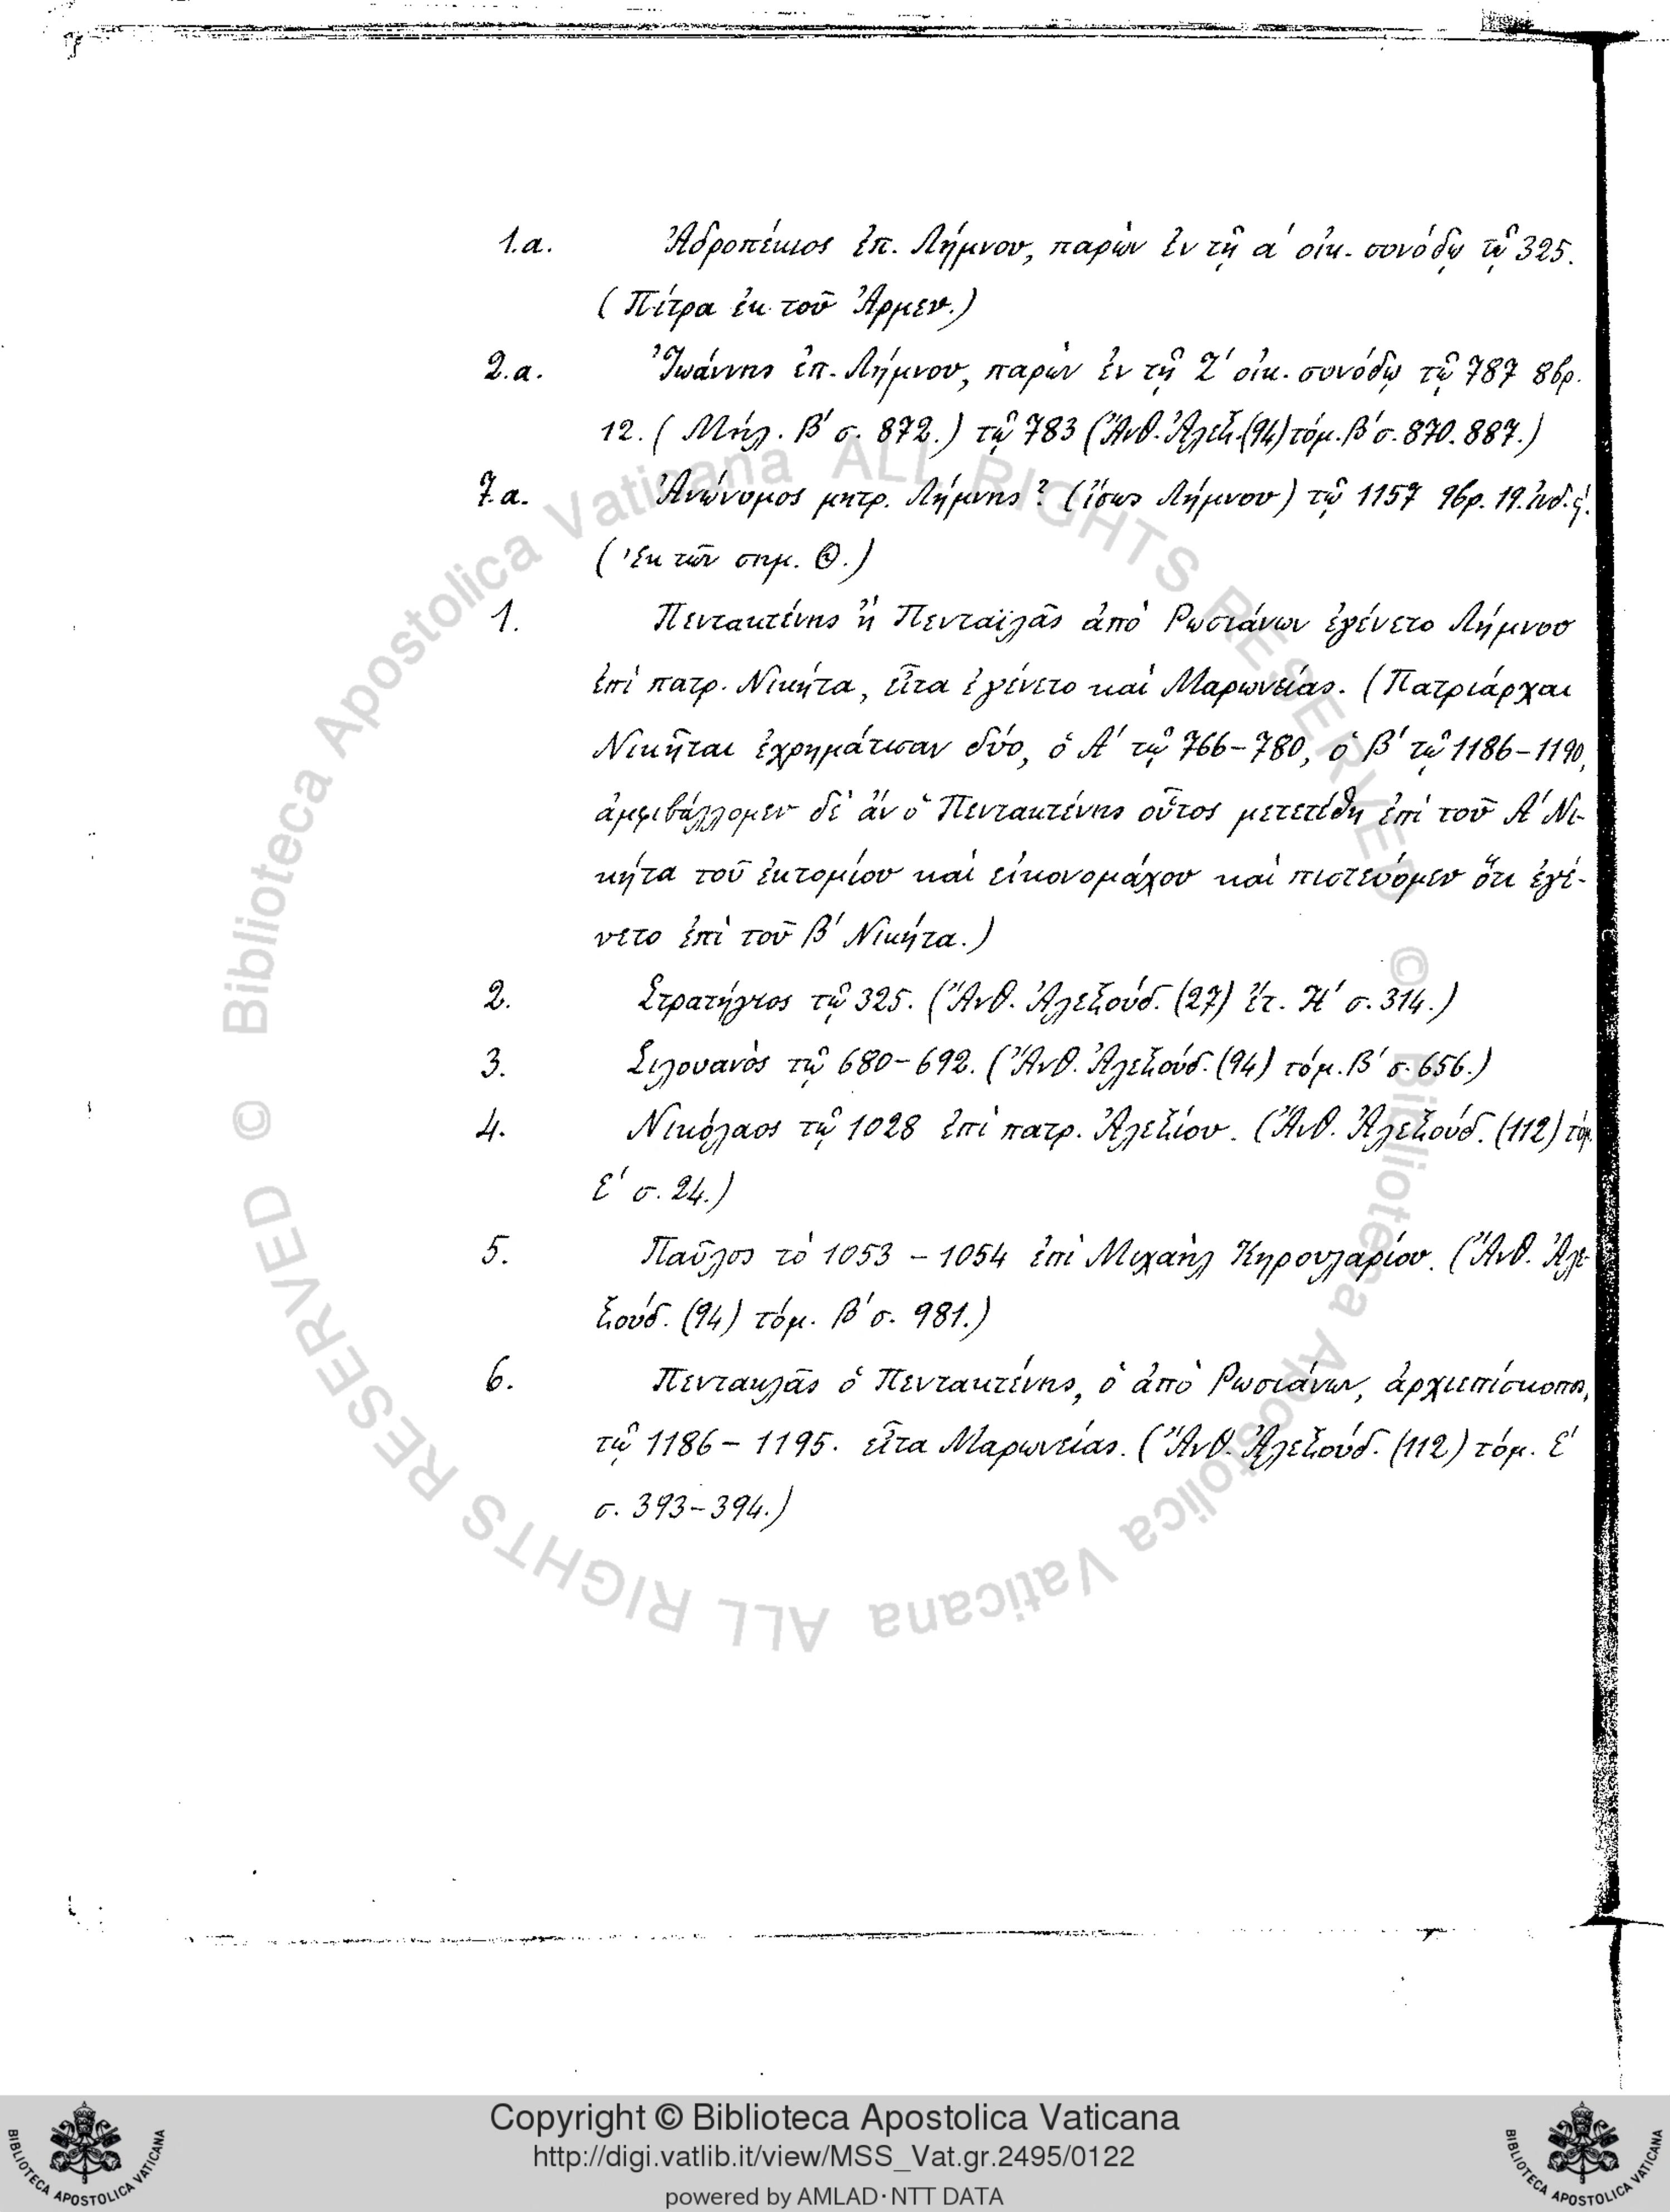 1.α. Ἀδροπέκιος ἐπ. Λήμνου, παρὼν ἐν τῇ α΄ οἰκ. συνόδῳ τῷ 325.
(Πίτρα ἐκ τοῦ Ἀρμεν.)
2.α. Ἰωάννης ἐπ. Λήμνου, παρὼν ἐν τῇ Ζ΄ οἰκ. συνόδῳ τῷ 787 8βρ.
12. (Μήλ. Β΄ σ. 872.) τῷ 783 (Ἄνθ. Ἀλεξ. (94) τόμ. Β΄ σ. 870. 887.)
7.α. Ἀνώνυμος μητρ. Λήμνης? (ἴσως Λήμνου) τῷ 1157 9βρ. 19. ἰνδ. ϛ΄.
(Ἐκ τῶν σημ. Θ.)
1. Πεντακτένης ἢ Πενταϊλᾶς ἀπὸ Ρωσιάνων ἐγένετο Λήμνου
ἐπὶ πατρ. Νικήτα, εἶτα ἐγένετο καὶ Μαρωνείας. (Πατριάρχαι
Νικῆται ἐχρημάτισαν δύο, ὁ Α΄ τῷ 766-780, ὁ Β΄ τῷ 1186-1190,
ἀμφιβάλλομεν δὲ ἄν ὁ Πεντακτένης οὗτος μετετέθη ἐπὶ τοῦ Α΄ Νι-
κήτα τοῦ ἐκτομίου καὶ εἰκονομάχου καὶ πιστεύομεν ὅτι ἐγέ-
νετο ἐπὶ τοῦ Β΄ Νικήτα.)
2. Στρατήγιος τῷ 325. (Ἄνθ. Ἀλεξούδ. (27) ἔτ. Η΄ σ. 314.)
3. Σιλουανὸς τῷ 680-692. (Ἄνθ. Ἀλεξούδ. (94) τόμ. Β΄ σ. 656.)
4. Νικόλαος τῷ 1028 ἐπὶ πατρ. Ἀλεξίου. (Ἄνθ. Ἀλεξούδ. (112) τόμ.
Ε΄ σ. 24.)
5. Παῦλος τὸ 1053 - 1054 ἐπὶ Μιχαὴλ Κηρουλαρίου. (Ἄνθ. Ἀλε-
ξούδ. (94) τόμ. Β΄ σ. 981.)
6. Πεντακλᾶς ὁ Πεντακτένης, ὁ ἀπὸ Ρωσιάνων, ἀρχιεπίσκοπος,
τῷ 1186 - 1195. εἶτα Μαρωνείας. (Ἄνθ. Ἀλεξούδ. (112) τόμ. Ε΄
σ. 393-394.)
© Biblioteca Apostolica Vaticana ALL RIGHTS RESERVED © Biblioteca Apostolica Vaticana ALL RIGHTS RESERVED
Copyright © Biblioteca Apostolica Vaticana
http://digi.vatlib.it/view/MSS_Vat.gr.2495/0122
powered by AMLAD·NTT DATA
BIBLIOTECA APOSTOLICA VATICANA
BIBLIOTECA APOSTOLICA VATICANA